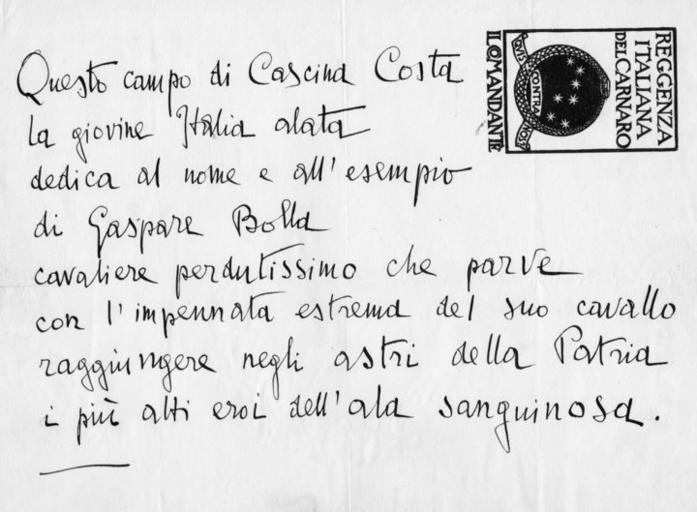 Questo campo di Cascina Costa
la giovine Italia alata
dedica al nome e all'esempio
di Gaspare Bolla
cavaliere perdutissimo che parve
con l'impennata estrema del suo cavallo
raggiungere negli astri della Patria
i più alti eroi dell'ala sanguinosa.
REGGENZA
ITALIANA
DEL CARNARO
QVIS CONTRA NOS
IL COMANDANTE